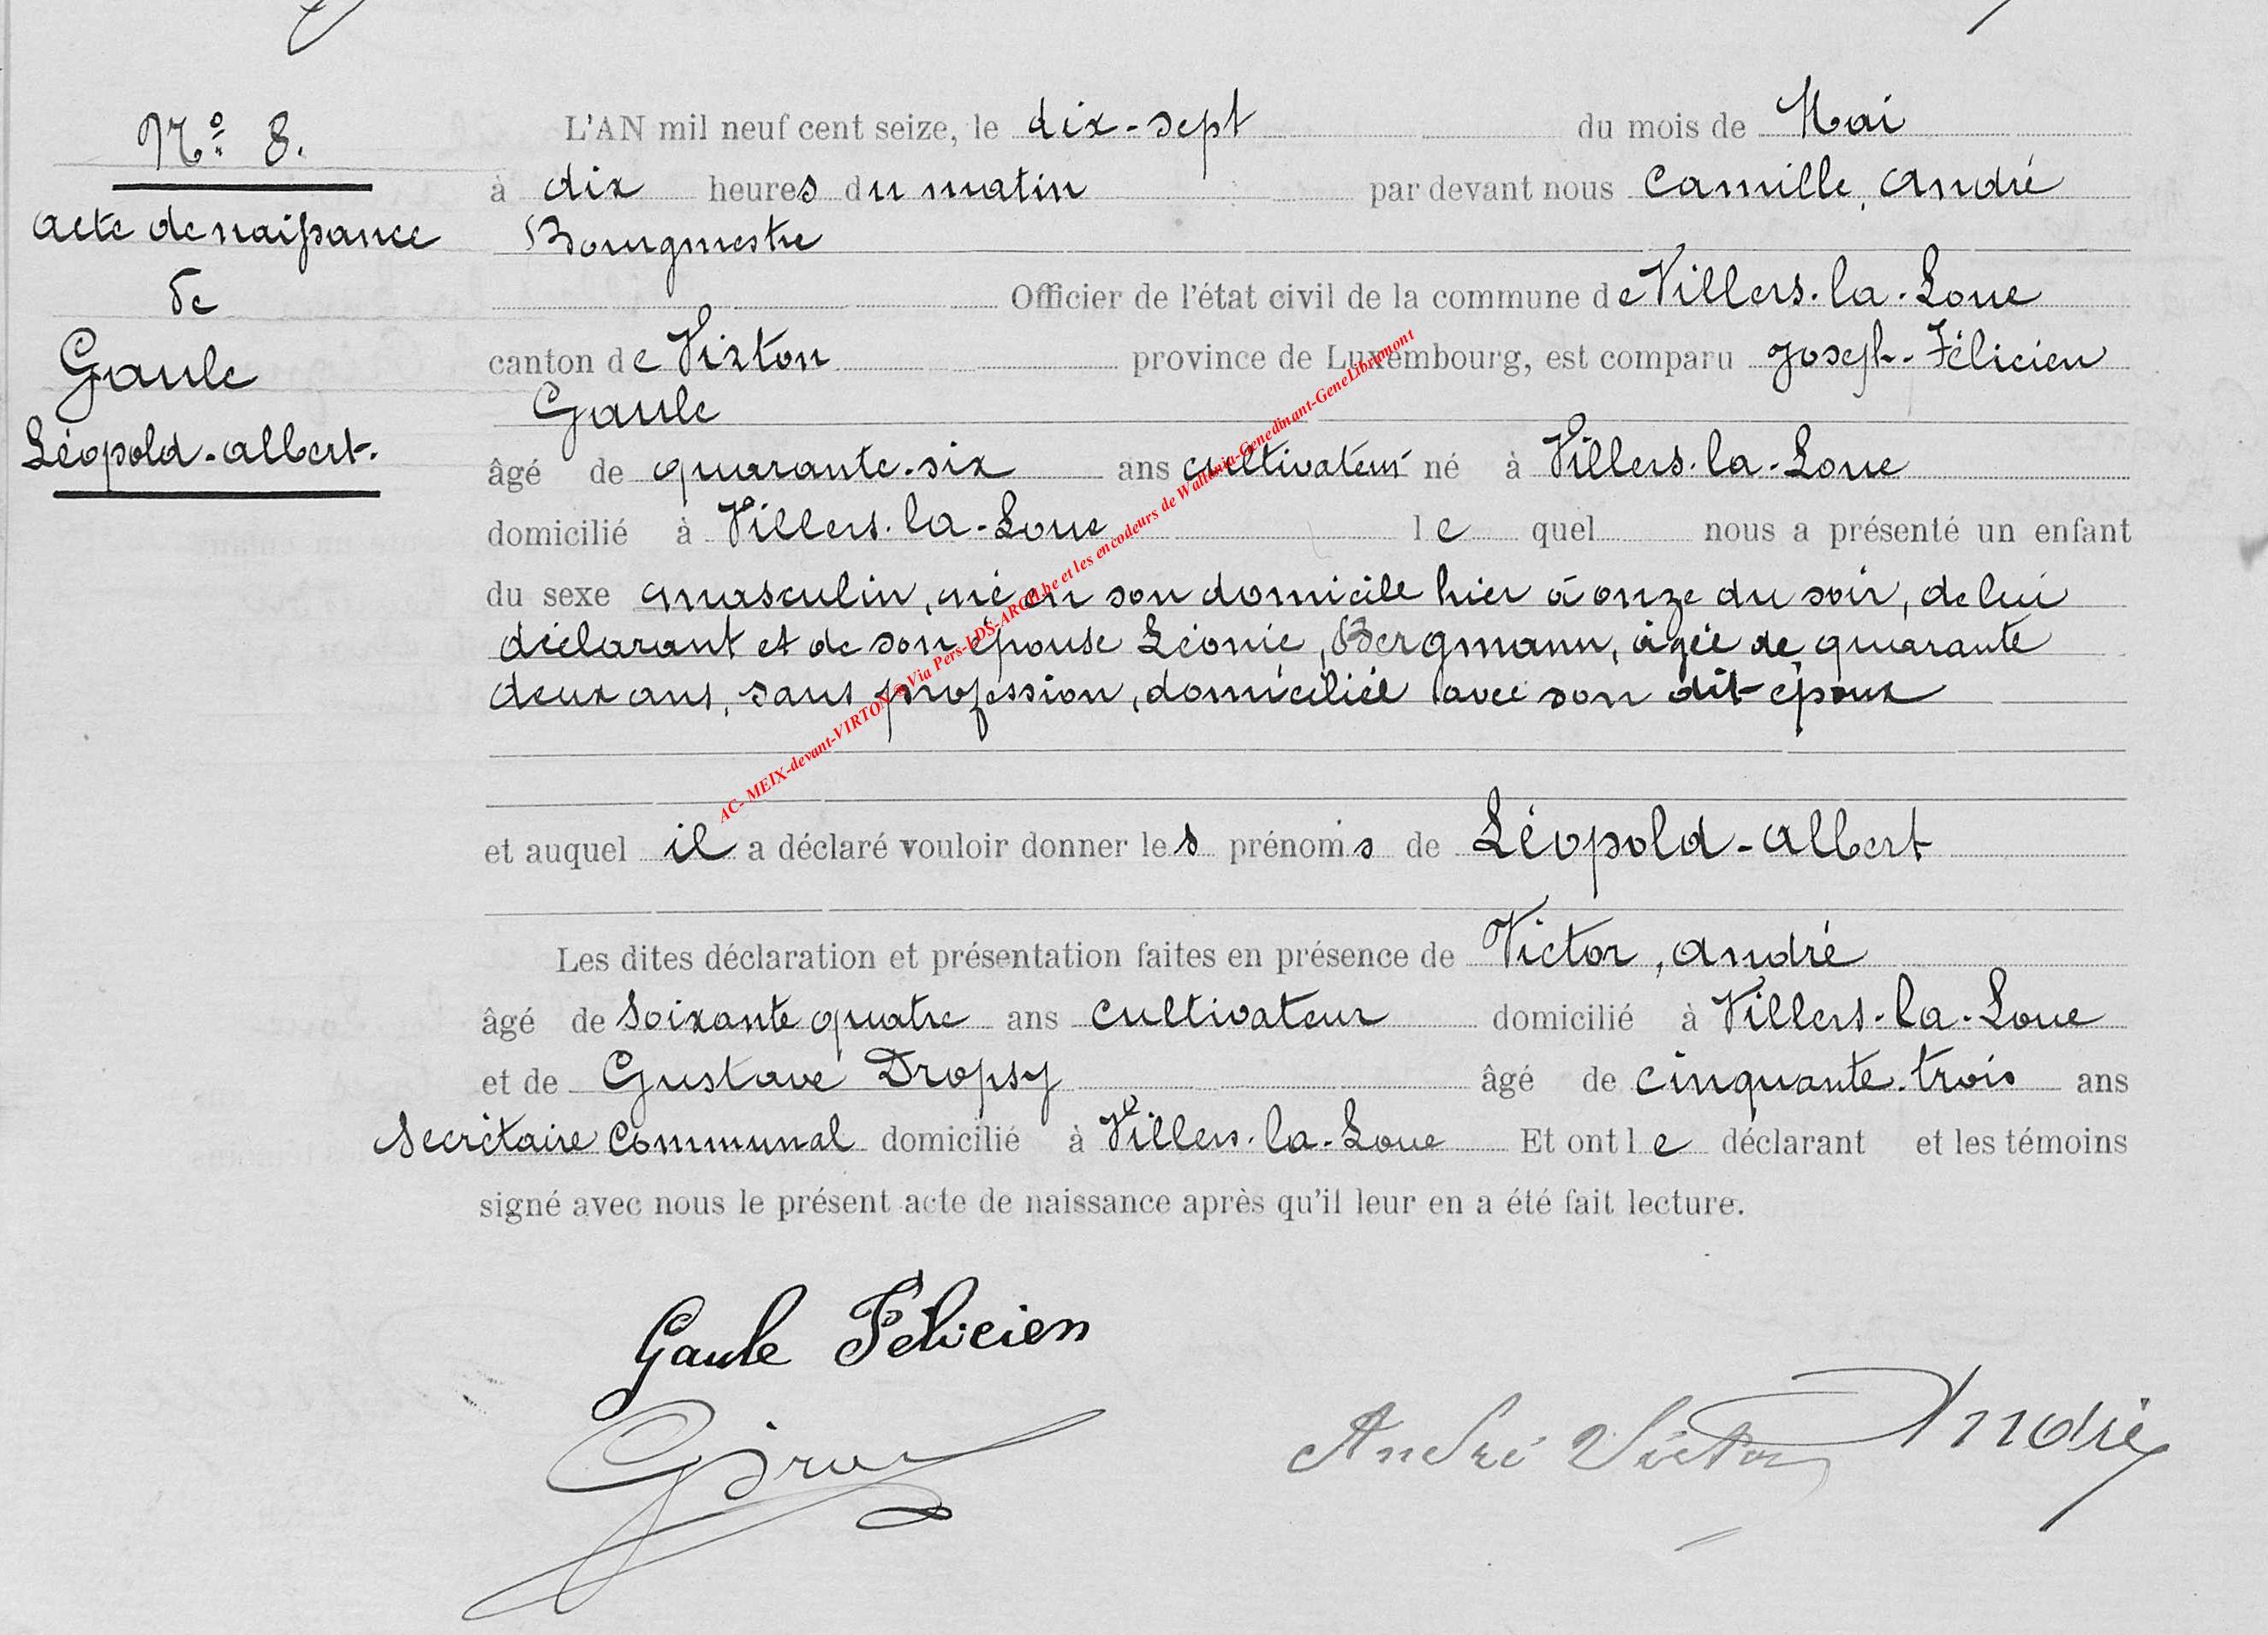 N° 8.
acte de naissance
de
Gaule
Léopold-albert.
L'AN mil neuf cent seize, le dix-sept du mois de Mai
à dix heures du matin par devant nous Camille, André
Bourgmestre
Officier de l'état civil de la commune de Villers-la-Loue
canton de Virton province de Luxembourg, est comparu Joseph-Félicien
Gaule
âgé de quarante-six ans cultivateur né à Villers-la-Loue
domicilié à Villers-la-Loue le quel nous a présenté un enfant
du sexe masculin, né en son domicile hier à onze du soir, de lui
déclarant et de son épouse Léonie, Bergmann, âgée de quarante
deux ans, sans profession, domiciliée avec son dit époux
et auquel il a déclaré vouloir donner les prénoms de Léopold-Albert
Les dites déclaration et présentation faites en présence de Victor, André
âgé de soixante quatre ans cultivateur domicilié à Villers-la-Loue
et de Gustave Dropsy âgé de cinquante-trois ans
Secrétaire Communal domicilié à Villers-la-Loue Et ont le déclarant et les témoins
signé avec nous le présent acte de naissance après qu'il leur en a été fait lecture.
Gaule Félicien
André Victor
André
AC- MEIX-devant-VIRTON @ Via Pers-LDS-ARCH.be et les encodeurs de Wallonia-Genedinant-GeneLibramont